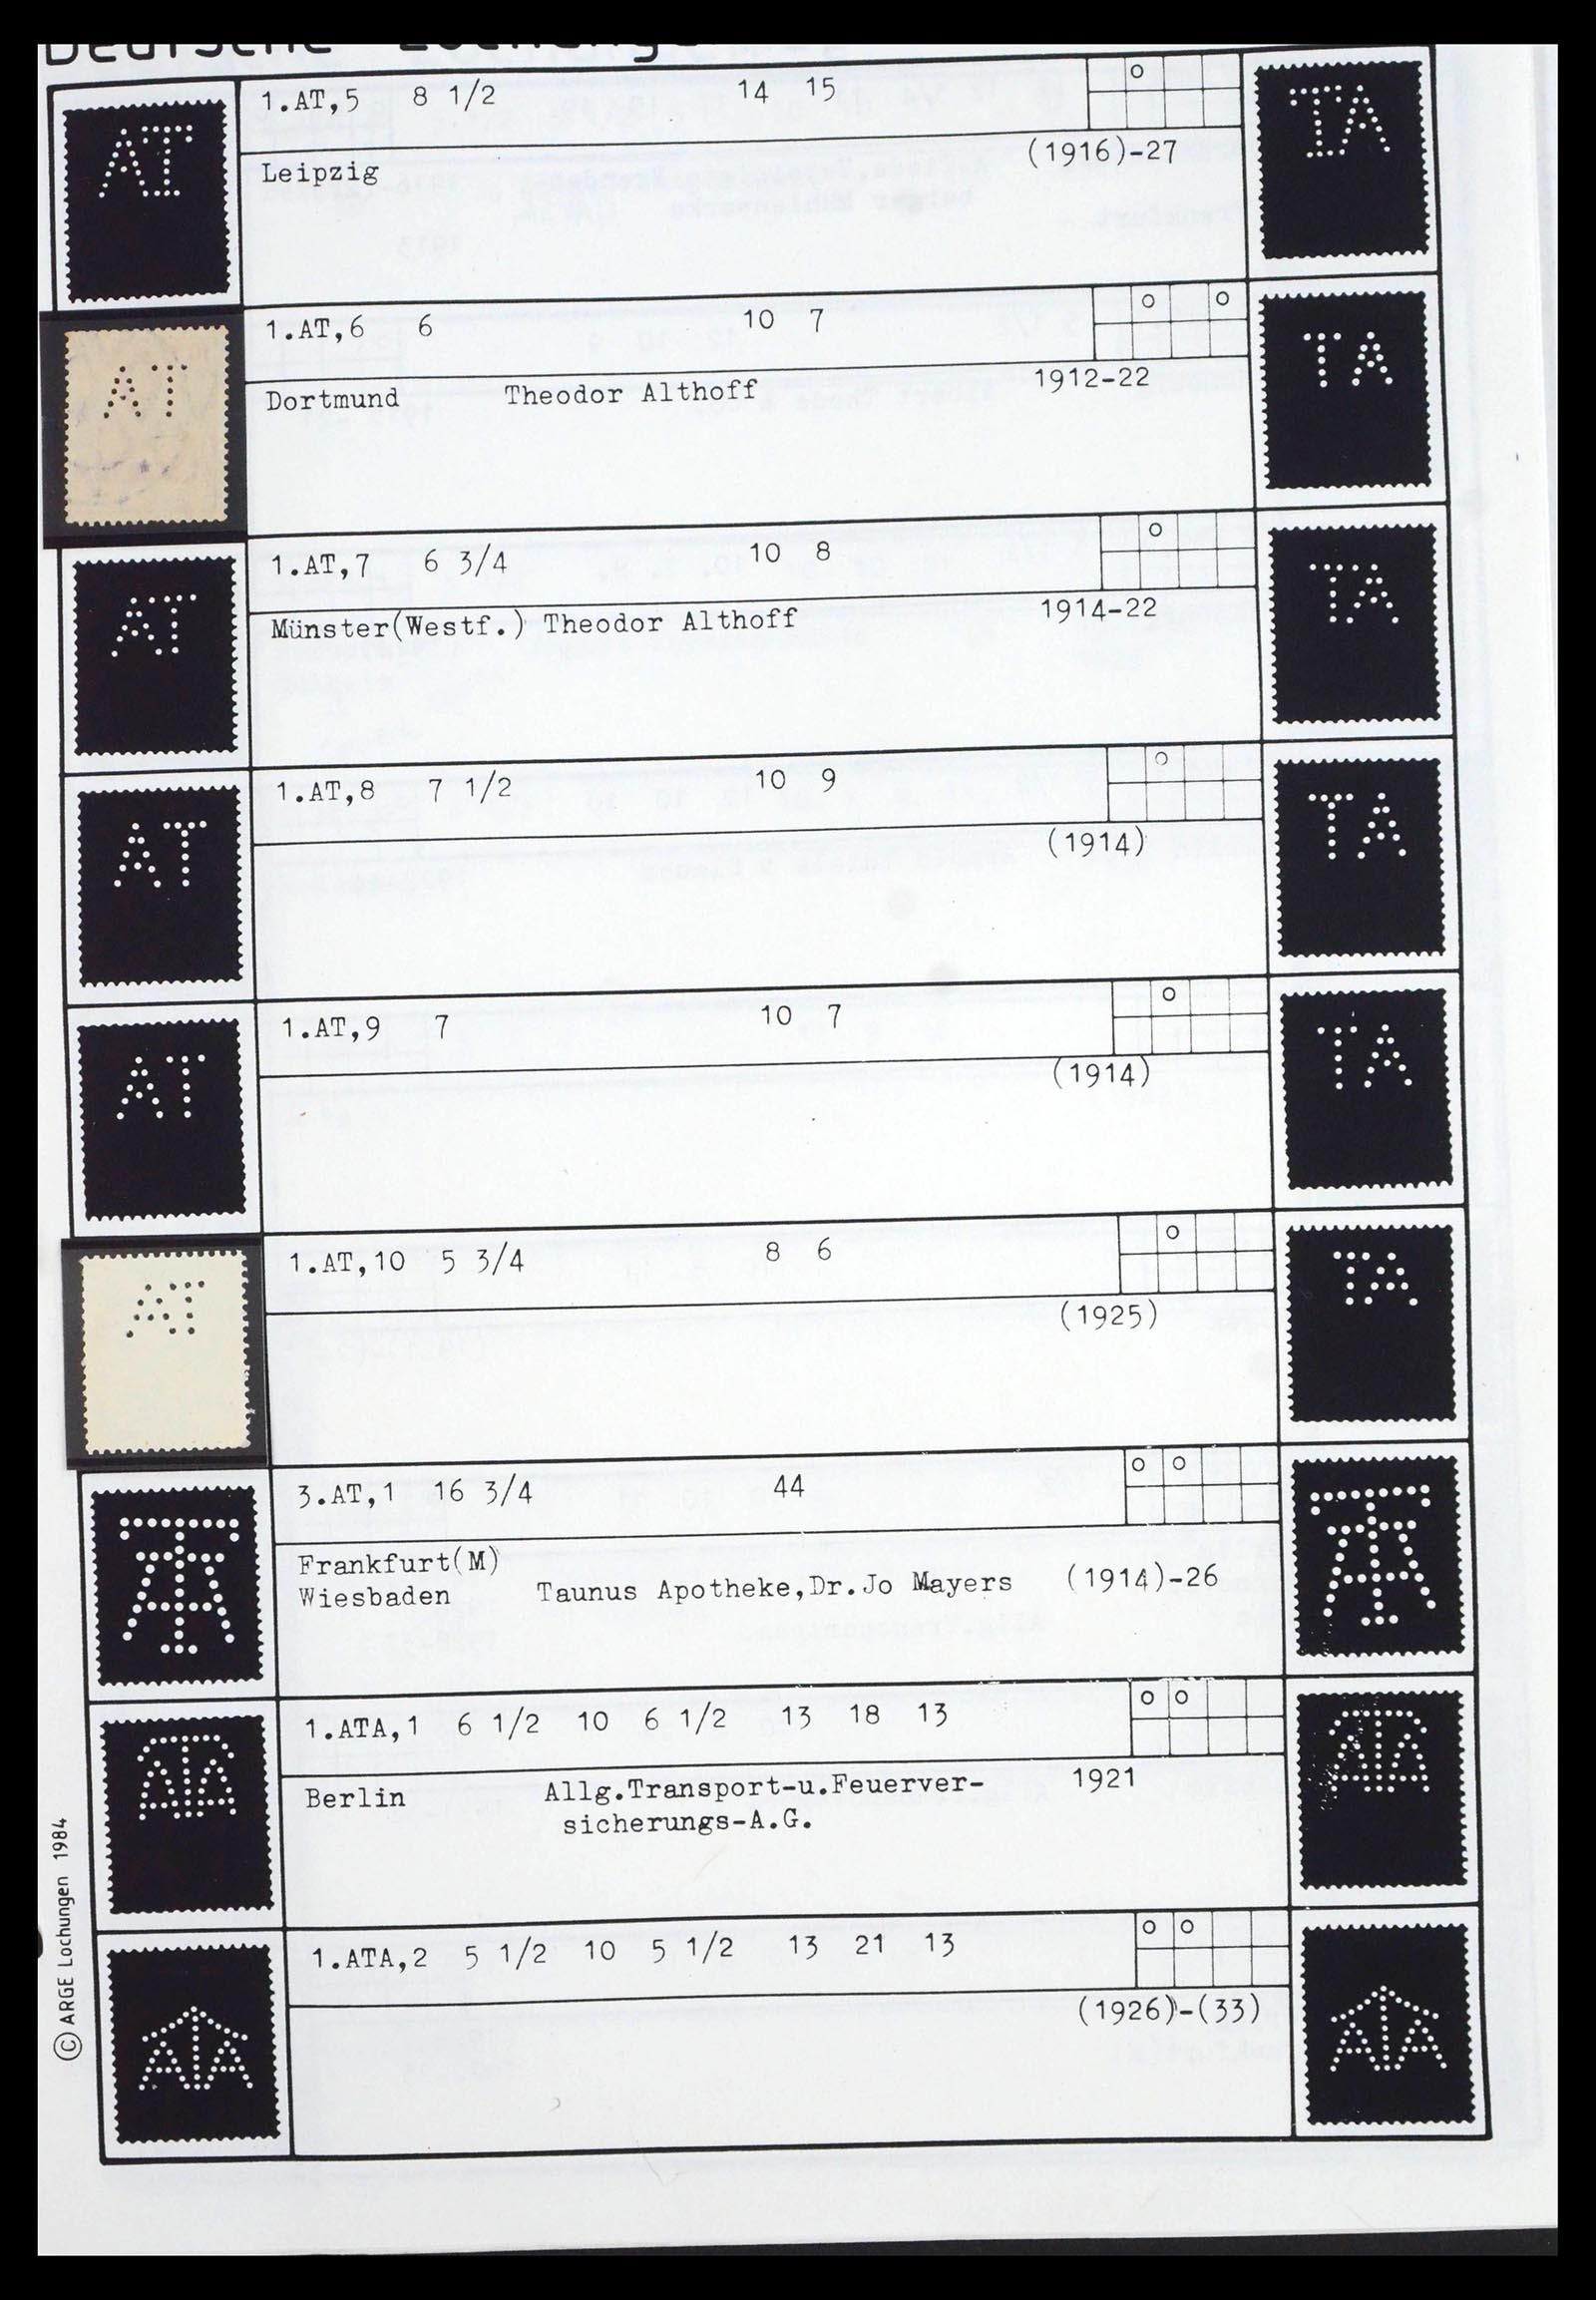 AT
1.AT,5 8 1/2 14 15
TA
Leipzig (1916)-27
AT
1.AT,6 6 10 7
TA
Dortmund Theodor Althoff 1912-22
AT
1.AT,7 6 3/4 10 8
TA
Münster(Westf.) Theodor Althoff 1914-22
AT
1.AT,8 7 1/2 10 9
TA
(1914)
AT
1.AT,9 7 10 7
TA
(1914)
AT
1.AT,10 5 3/4 8 6
TA
(1925)
3.AT,1 16 3/4 44
Frankfurt(M)
Wiesbaden Taunus Apotheke,Dr.Jo Mayers (1914)-26
ATA
1.ATA,1 6 1/2 10 6 1/2 13 18 13
ATA
Berlin Allg.Transport-u.Feuerver- 1921
sicherungs-A.G.
ATA
1.ATA,2 5 1/2 10 5 1/2 13 21 13
ATA
(1926)-(33)
© ARGE Lochungen 1984